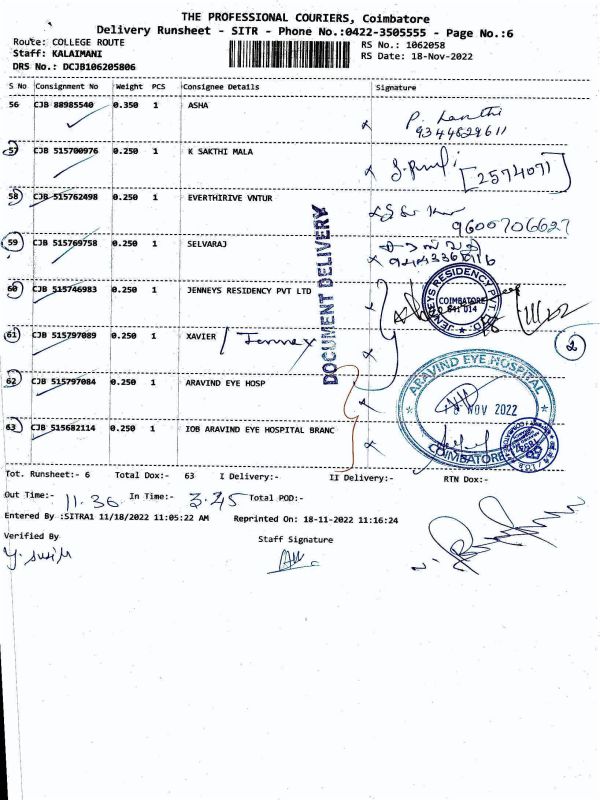 THE PROFESSIONAL COURIERS, Coimbatore
Delivery Runsheet - SITR - Phone No.:0422-3505555 - Page No.:6
Route: COLLEGE ROUTE
Staff: KALAIMANI
DRS No.: DCJB106205806
RS No.: 1062058
RS Date: 18-Nov-2022
S No Consignment No Weight PCS Consignee Details Signature
56 CJB 88985540 0.350 1 ASHA
9344629611
57 CJB 515700976 0.250 1 K SAKTHI MALA
[2574071]
58 CJB 515762498 0.250 1 EVERTHIRIVE VNTUR
9600706627
59 CJB 515769758 0.250 1 SELVARAJ
60 CJB 515746983 0.250 1 JENNEYS RESIDENCY PVT LTD
JENNEYS RESIDENCY PVT LTD
COIMBATORE
641 014
61 CJB 515797089 0.250 1 XAVIER / Jenney
2
DOCUMENT DELIVERY
62 CJB 515797084 0.250 1 ARAVIND EYE HOSP
ARAVIND EYE HOSPITAL
18 NOV 2022
COIMBATORE
63 CJB 515682114 0.250 1 IOB ARAVIND EYE HOSPITAL BRANC
Tot. Runsheet:- 6 Total Dox:- 63 I Delivery:- II Delivery:- RTN Dox:-
Out Time:- 11.36 In Time:- 3.45 Total POD:-
Entered By :SITRA1 11/18/2022 11:05:22 AM Reprinted On: 18-11-2022 11:16:24
Verified By Staff Signature